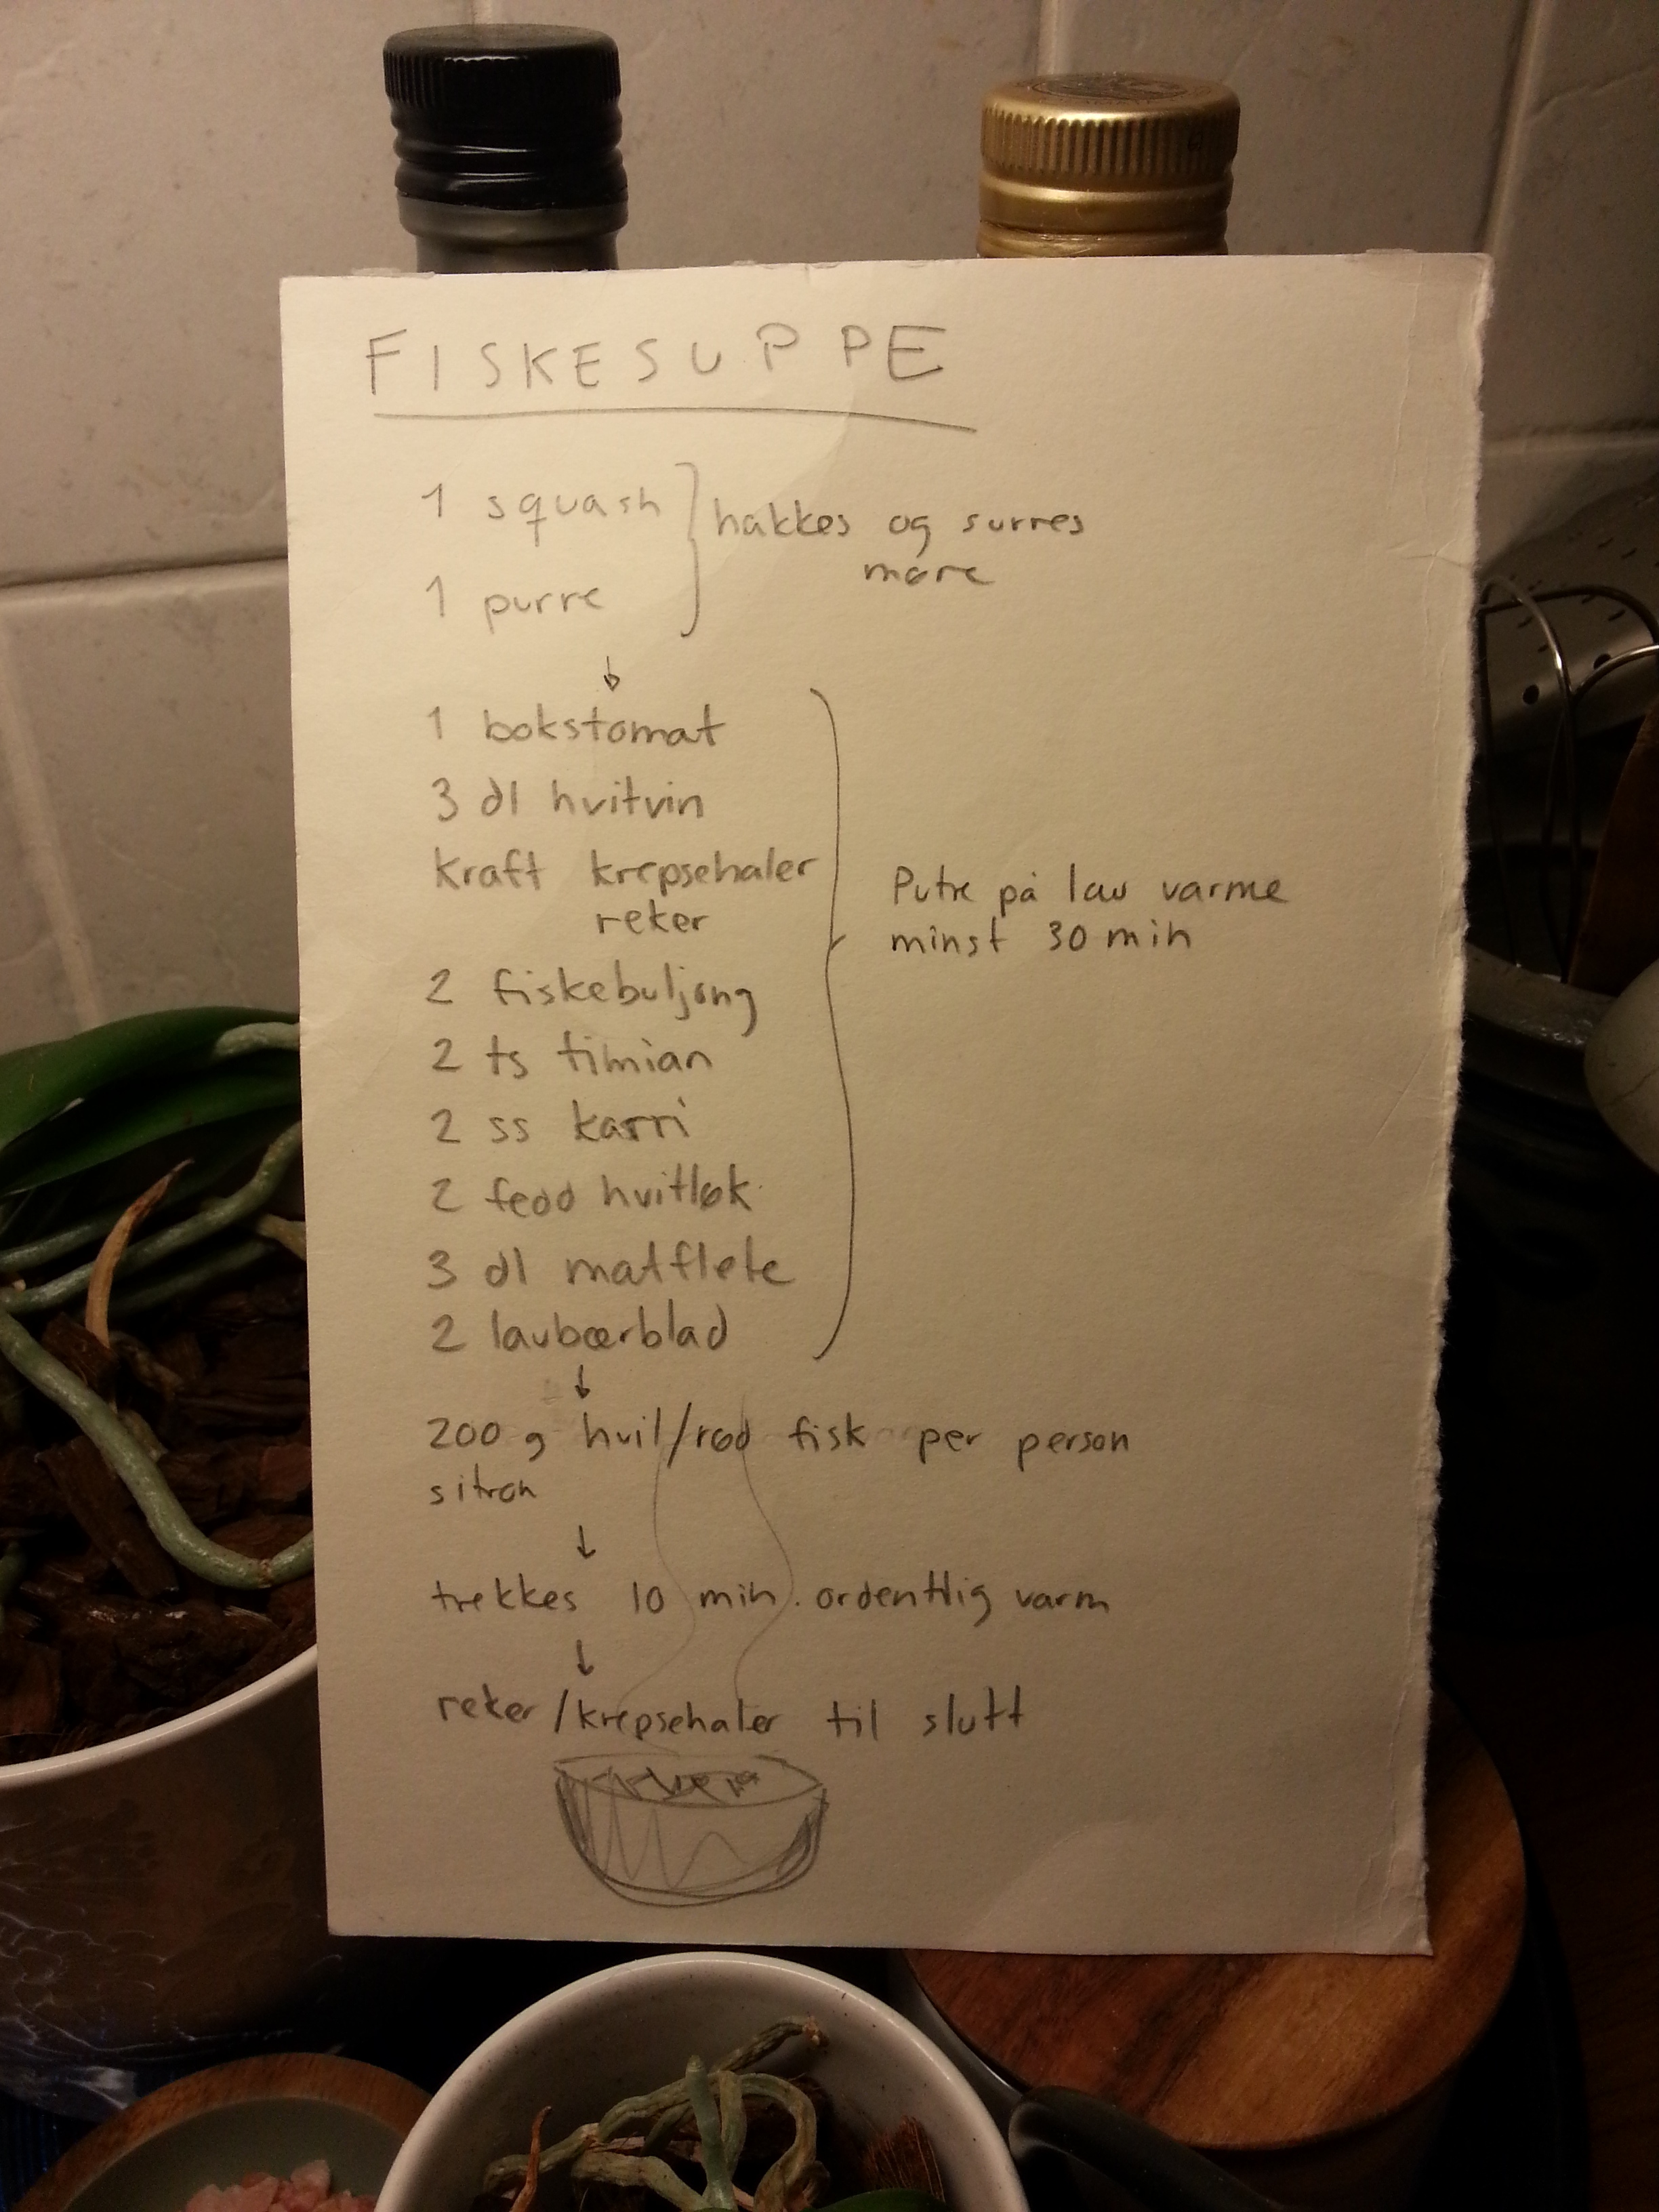 FISKESUPPE
1 squash
hakkes og surres
møre
1 purre
1 bokstomat
3 dl hvitvin
Kraft krepsehaler
reker
Putre på lav varme
minst 30 min
2 fiskebuljong
2 ts timian
2 ss karri
2 fedd hvitløk
3 dl matfløte
2 laubærblad
200 g hvit/rød fisk per person
sitron
trekkes 10 min. ordentlig varm
reker/krepsehaler til slutt